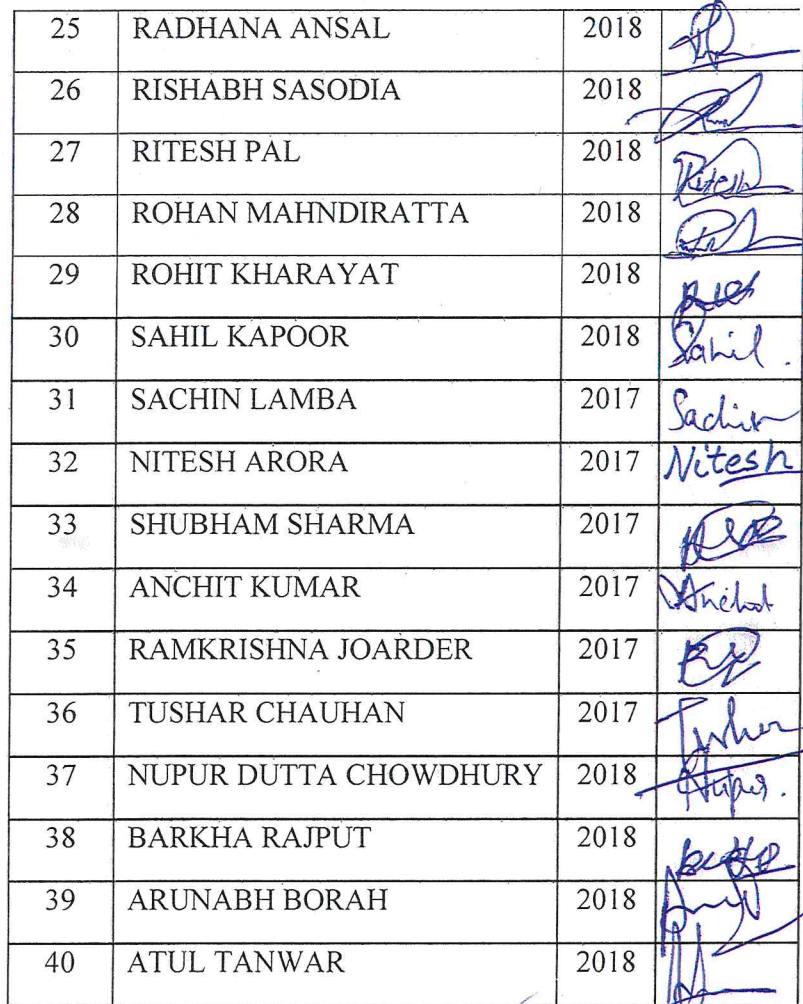 25 RADHANA ANSAL 2018
26 RISHABH SASODIA 2018
27 RITESH PAL 2018 Ritesh
28 ROHAN MAHNDIRATTA 2018
29 ROHIT KHARAYAT 2018
30 SAHIL KAPOOR 2018 Sahil.
31 SACHIN LAMBA 2017 Sachin
32 NITESH ARORA 2017 Nitesh
33 SHUBHAM SHARMA 2017
34 ANCHIT KUMAR 2017 Anchit
35 RAMKRISHNA JOARDER 2017
36 TUSHAR CHAUHAN 2017 Tushar
37 NUPUR DUTTA CHOWDHURY 2018 Nupur.
38 BARKHA RAJPUT 2018
39 ARUNABH BORAH 2018
40 ATUL TANWAR 2018